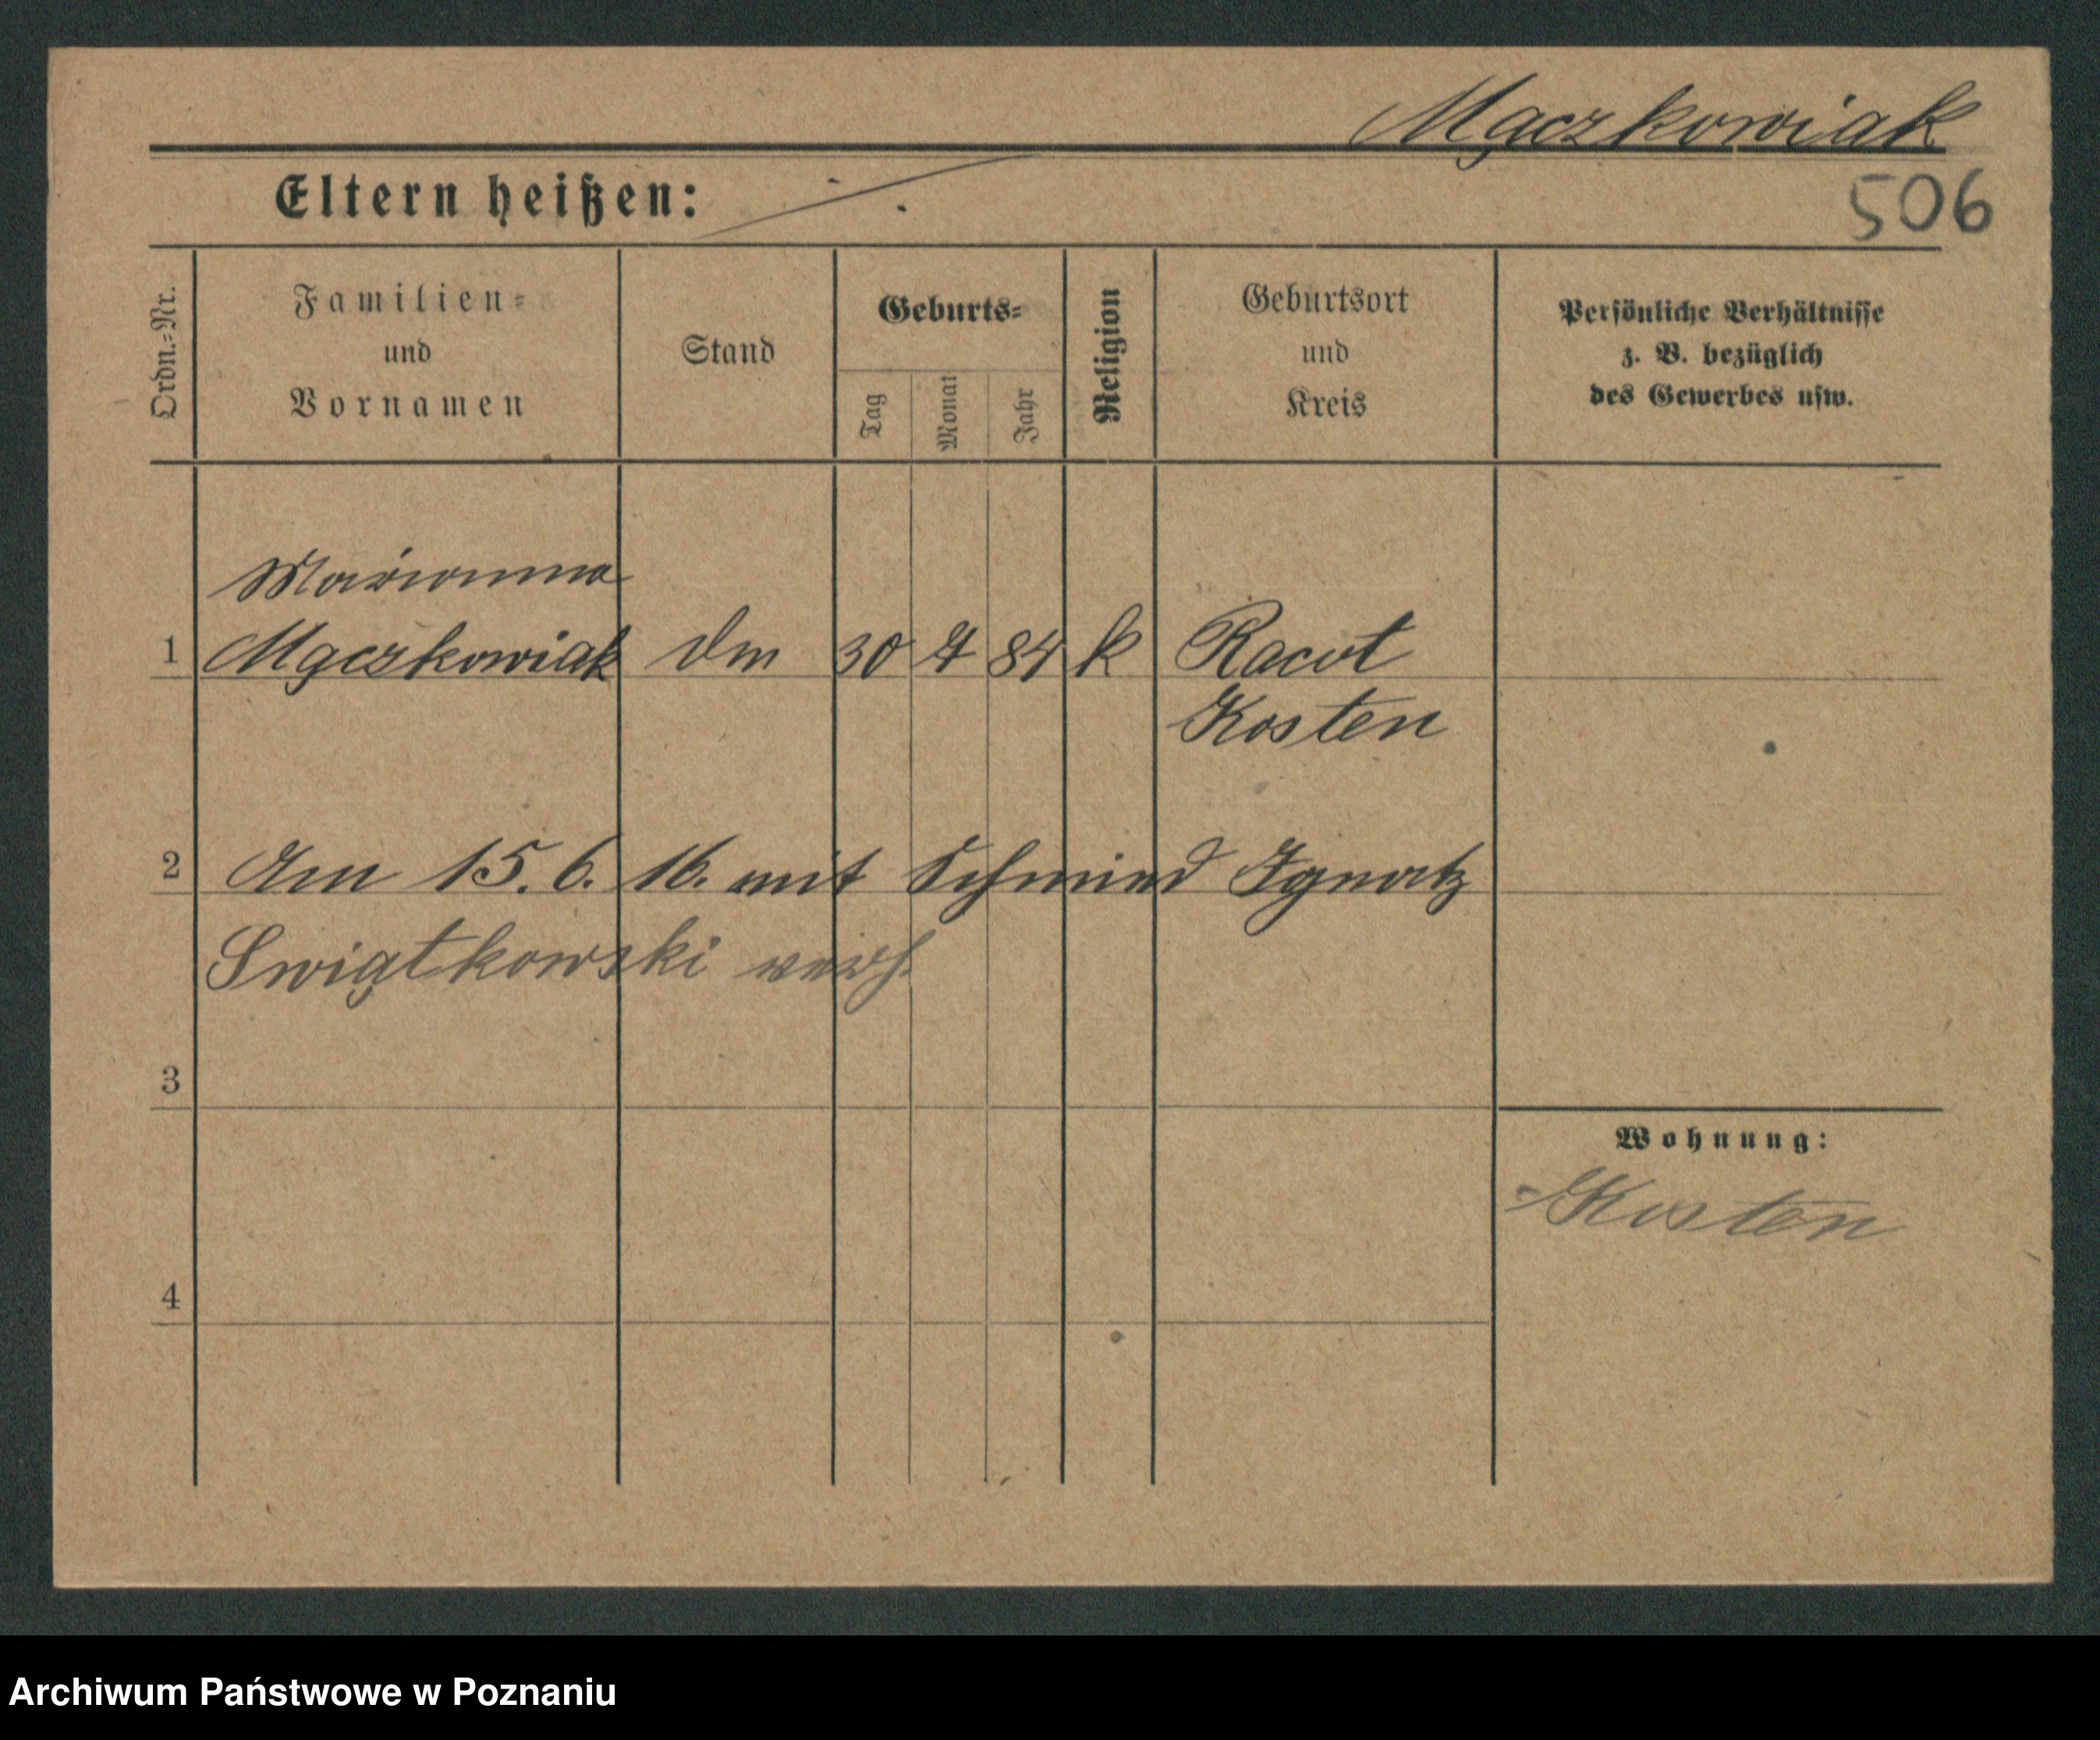 Mączkowiak
Eltern heißen:
506
Ordn.-Nr.
Familien-
und
Vornamen
Stand
Geburts-
Tag
Monat
Jahr
Religion
Geburtsort
und
Kreis
Persönliche Verhältnisse
z. B. bezüglich
des Gewerbes usw.
Marianna
1 Mączkowiak Dm 30 4 84 k Racot
Kosten
2 Am 15. 6. 16. mit Schmied Ignatz
Swiątkowski verh.
3
Wohnung:
Kosten
4
Archiwum Państwowe w Poznaniu